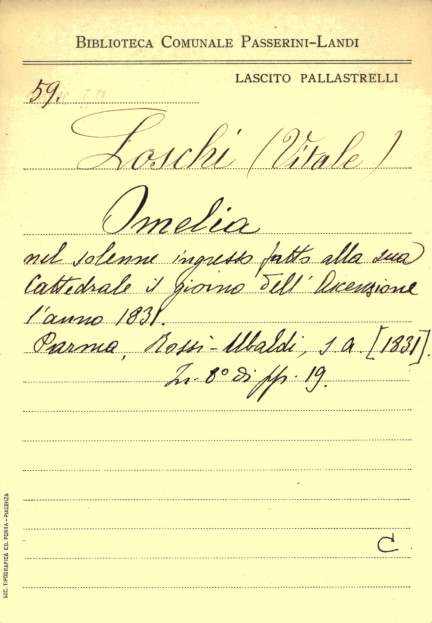 BIBLIOTECA COMUNALE PASSERINI-LANDI
LASCITO PALLASTRELLI
59.
Loschi (Vitale)
Omelia
nel solenne ingresso fatto alla sua
Cattedrale il giorno dell'Ascensione
l'anno 1831.
Parma, Rossi-Ubaldi, s a. [1831].
In 8° di pp. 19.
C
SOC. TIPOGRAFICA ED. PORTA - PIACENZA